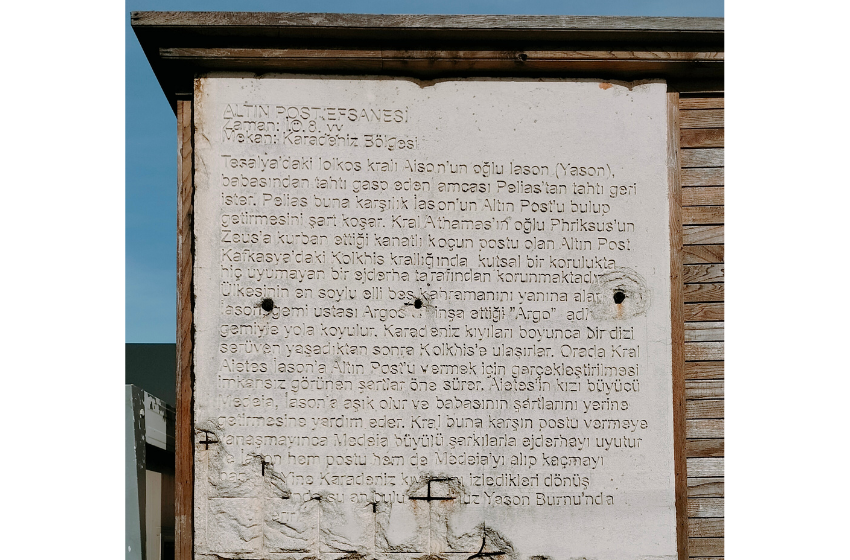 ALTIN POST EFSANESİ
Zaman: İ.Ö. 8. yy
Mekan: Karadeniz Bölgesi
Tesalya'daki Iolkos kralı Aison'un oğlu Iason (Yason),
babasından tahtı gasp eden amcası Pelias'tan tahtı geri
ister. Pelias buna karşılık Iason'un Altın Post'u bulup
getirmesini şart koşar. Kral Athamas'ın oğlu Phriksus'un
Zeus'a kurban ettiği kanatlı koçun postu olan Altın Post
Kafkasya'daki Kolkhis krallığında, kutsal bir korulukta
hiç uyumayan bir ejderha tarafından korunmaktadır
Ülkesinin en soylu elli beş kahramanını yanına alan
Iason, gemi ustası Argos'un inşa ettiği "Argo" adlı
gemiyle yola koyulur. Karadeniz kıyıları boyunca bir dizi
serüven yaşadıktan sonra Kolkhis'e ulaşırlar. Orada Kral
Aietes Iason'a Altın Post'u vermek için gerçekleştirilmesi
imkansız görünen şartlar öne sürer. Aietes'in kızı büyücü
Medeia, Iason'a aşık olur ve babasının şartlarını yerine
getirmesine yardım eder. Kral buna karşın postu vermeye
yanaşmayınca Medeia büyülü şarkılarla ejderhayı uyutur
Iason hem postu hem de Medeia'yı alıp kaçmayı
Yine Karadeniz izledikleri dönüş
şu an Yason Burnu'nda